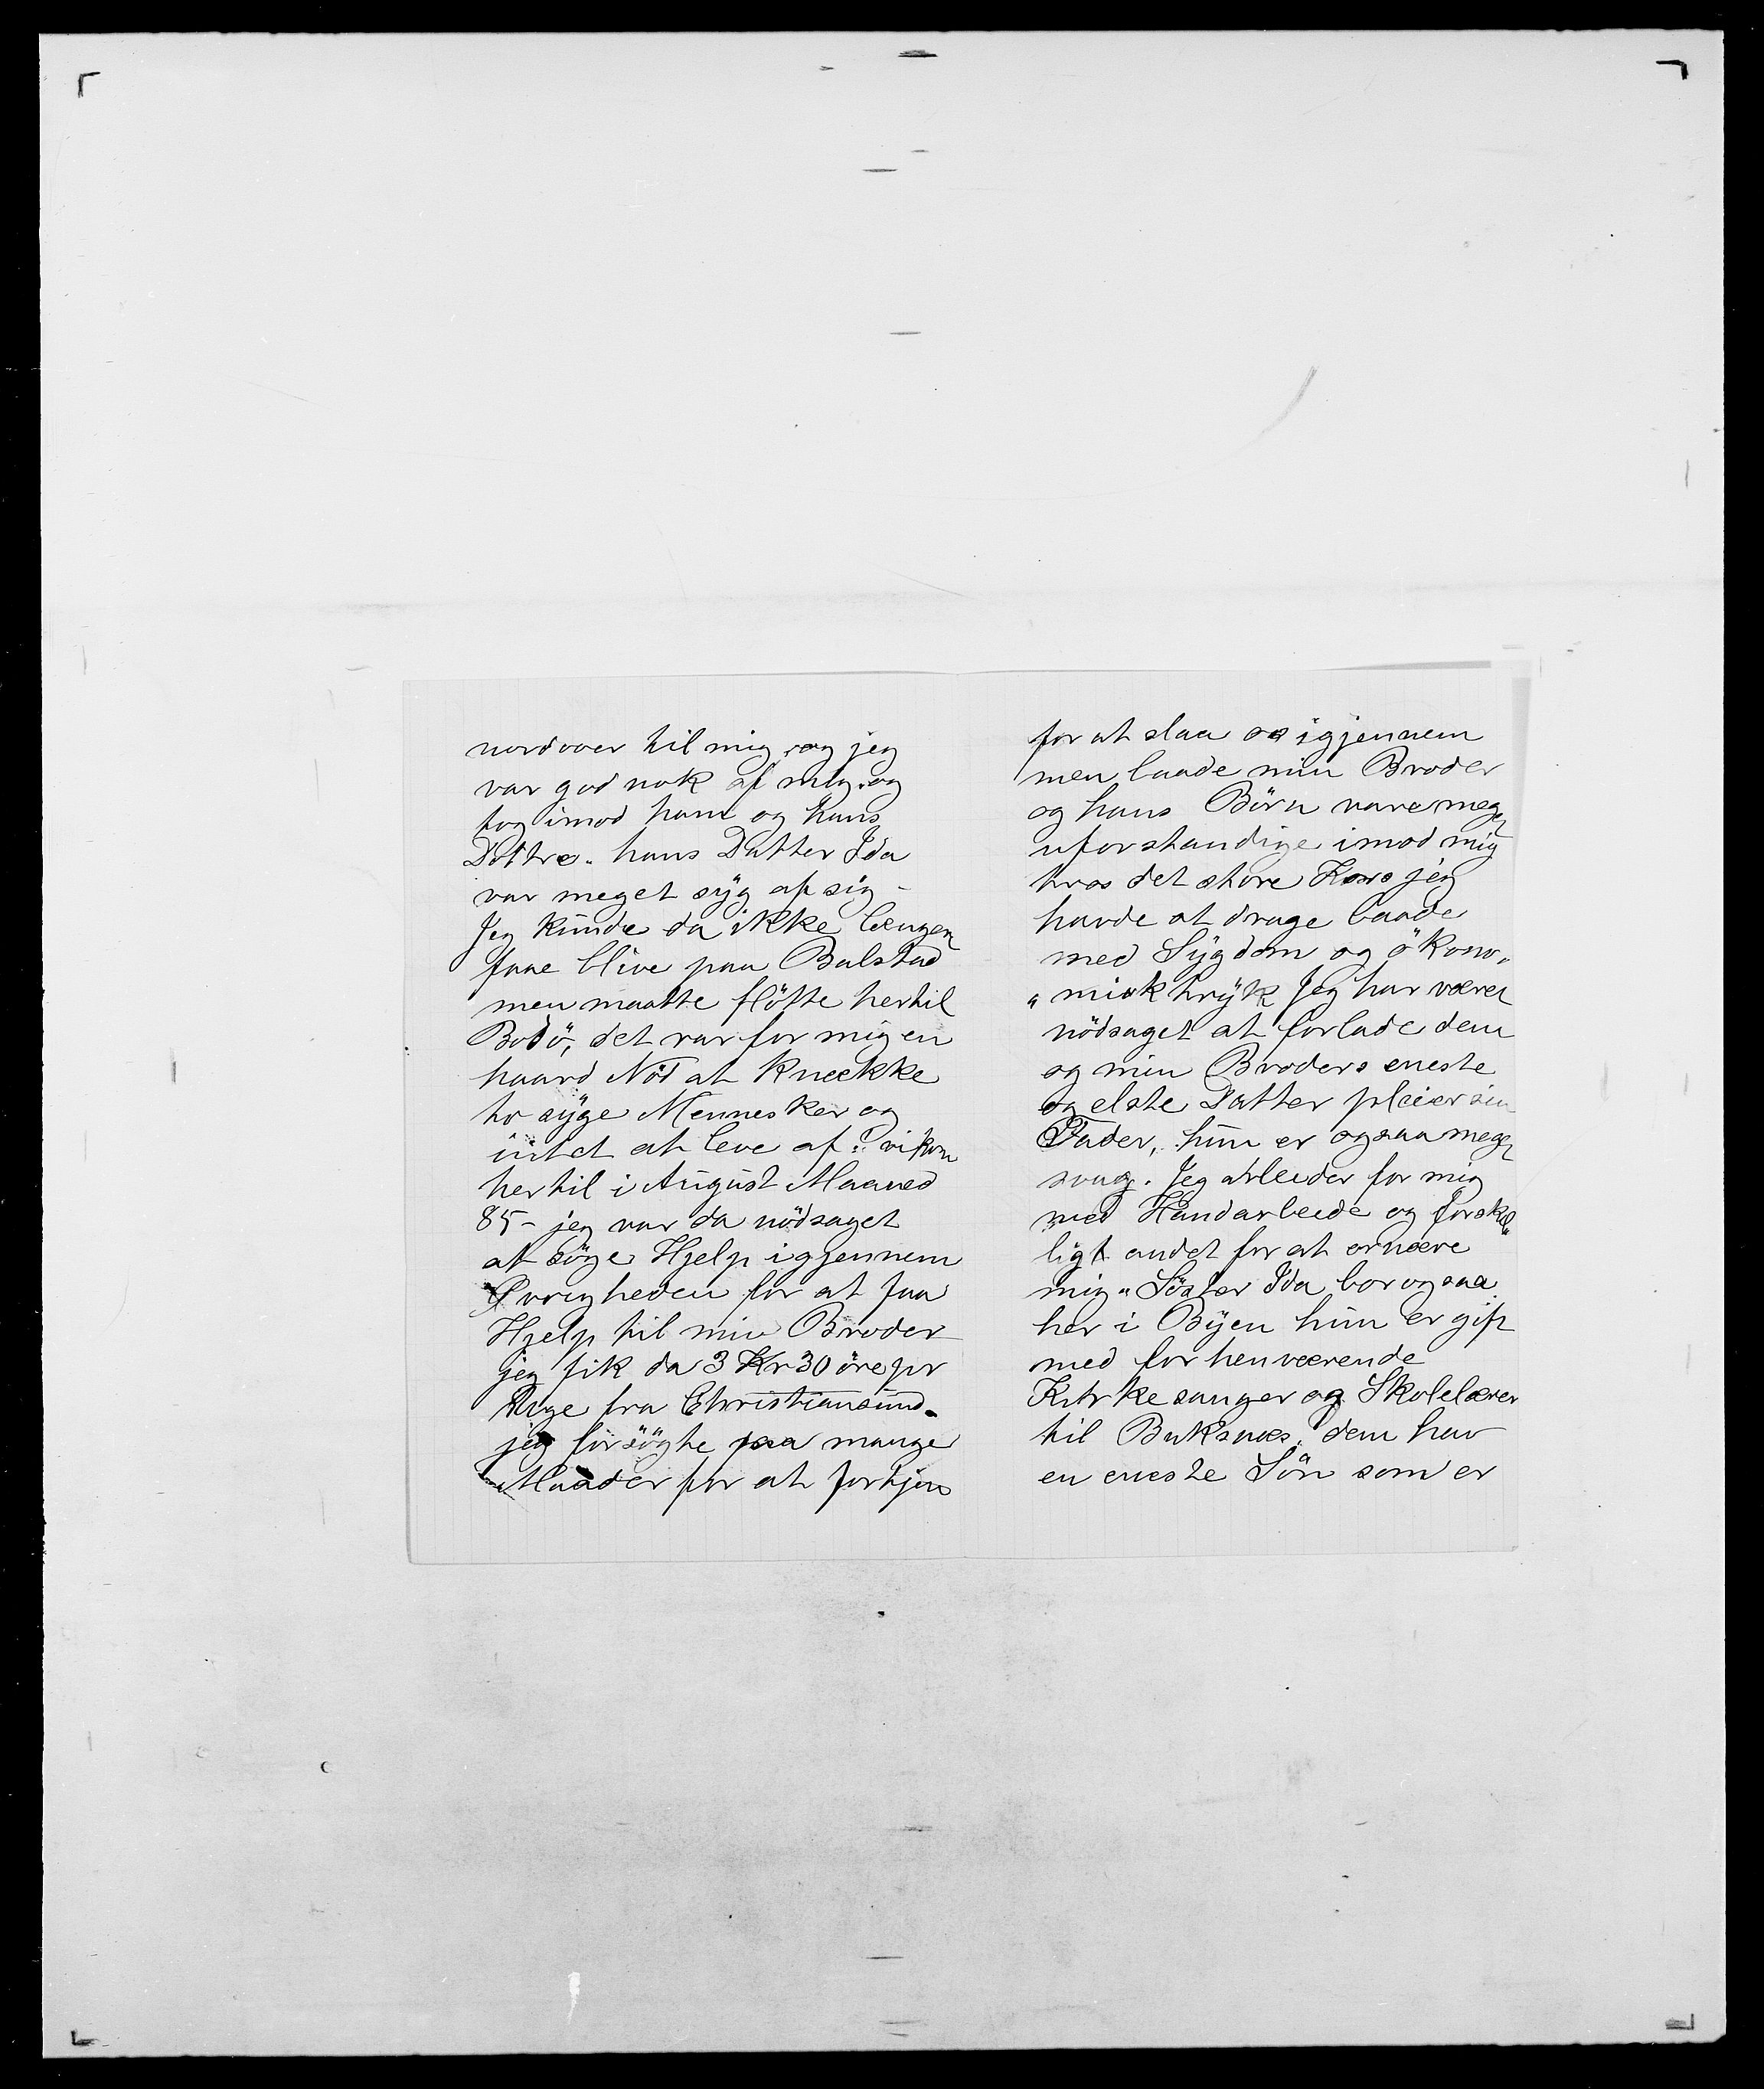 nordover til mig, og jeg
var god nok af mig. og
tog imod ham og hans
Döttre. hans Datter Ida
var meget syg af sig -
Jeg kunde da ikke længer
faae blive paa Balstad
men maatte flötte hertil
Bodö, det var for mig en
haard Nöd at knekke
to syge Mennesker og
intet at leve af. vi kom
hertil i August Maaned
85 - jeg var da nödsaget
at söge Hjelp igjennem
Övrigheden for at faa
Hjelp til min Broder
jeg fik da 3 Kr 30 öre pr
Uge fra Christiansund.
jeg forsögte paa mange
Maader for at fortjen
for at slaa os igjennem
men baade min Broder
og hans Börn vare meget
uforstandige imod mig
tros det store Kors jeg
havde at drage baade
med Sygdom og ökono„
„misk tryk Jeg har været
nödsaget at forlade dem
og min Broders eneste
og elste Datter pleier sin
Fader, hun er ogsaa meget
svag. Jeg arbeider for mig
med Handarbeide og forskel„
ligt andet for at ernære
mig„ Söster Ida bor ogsaa
her i Byen hun er gift
med forhenværende
Kirkesanger og Skolelærer
til Buksnes. dem har
en eneste Sön som er